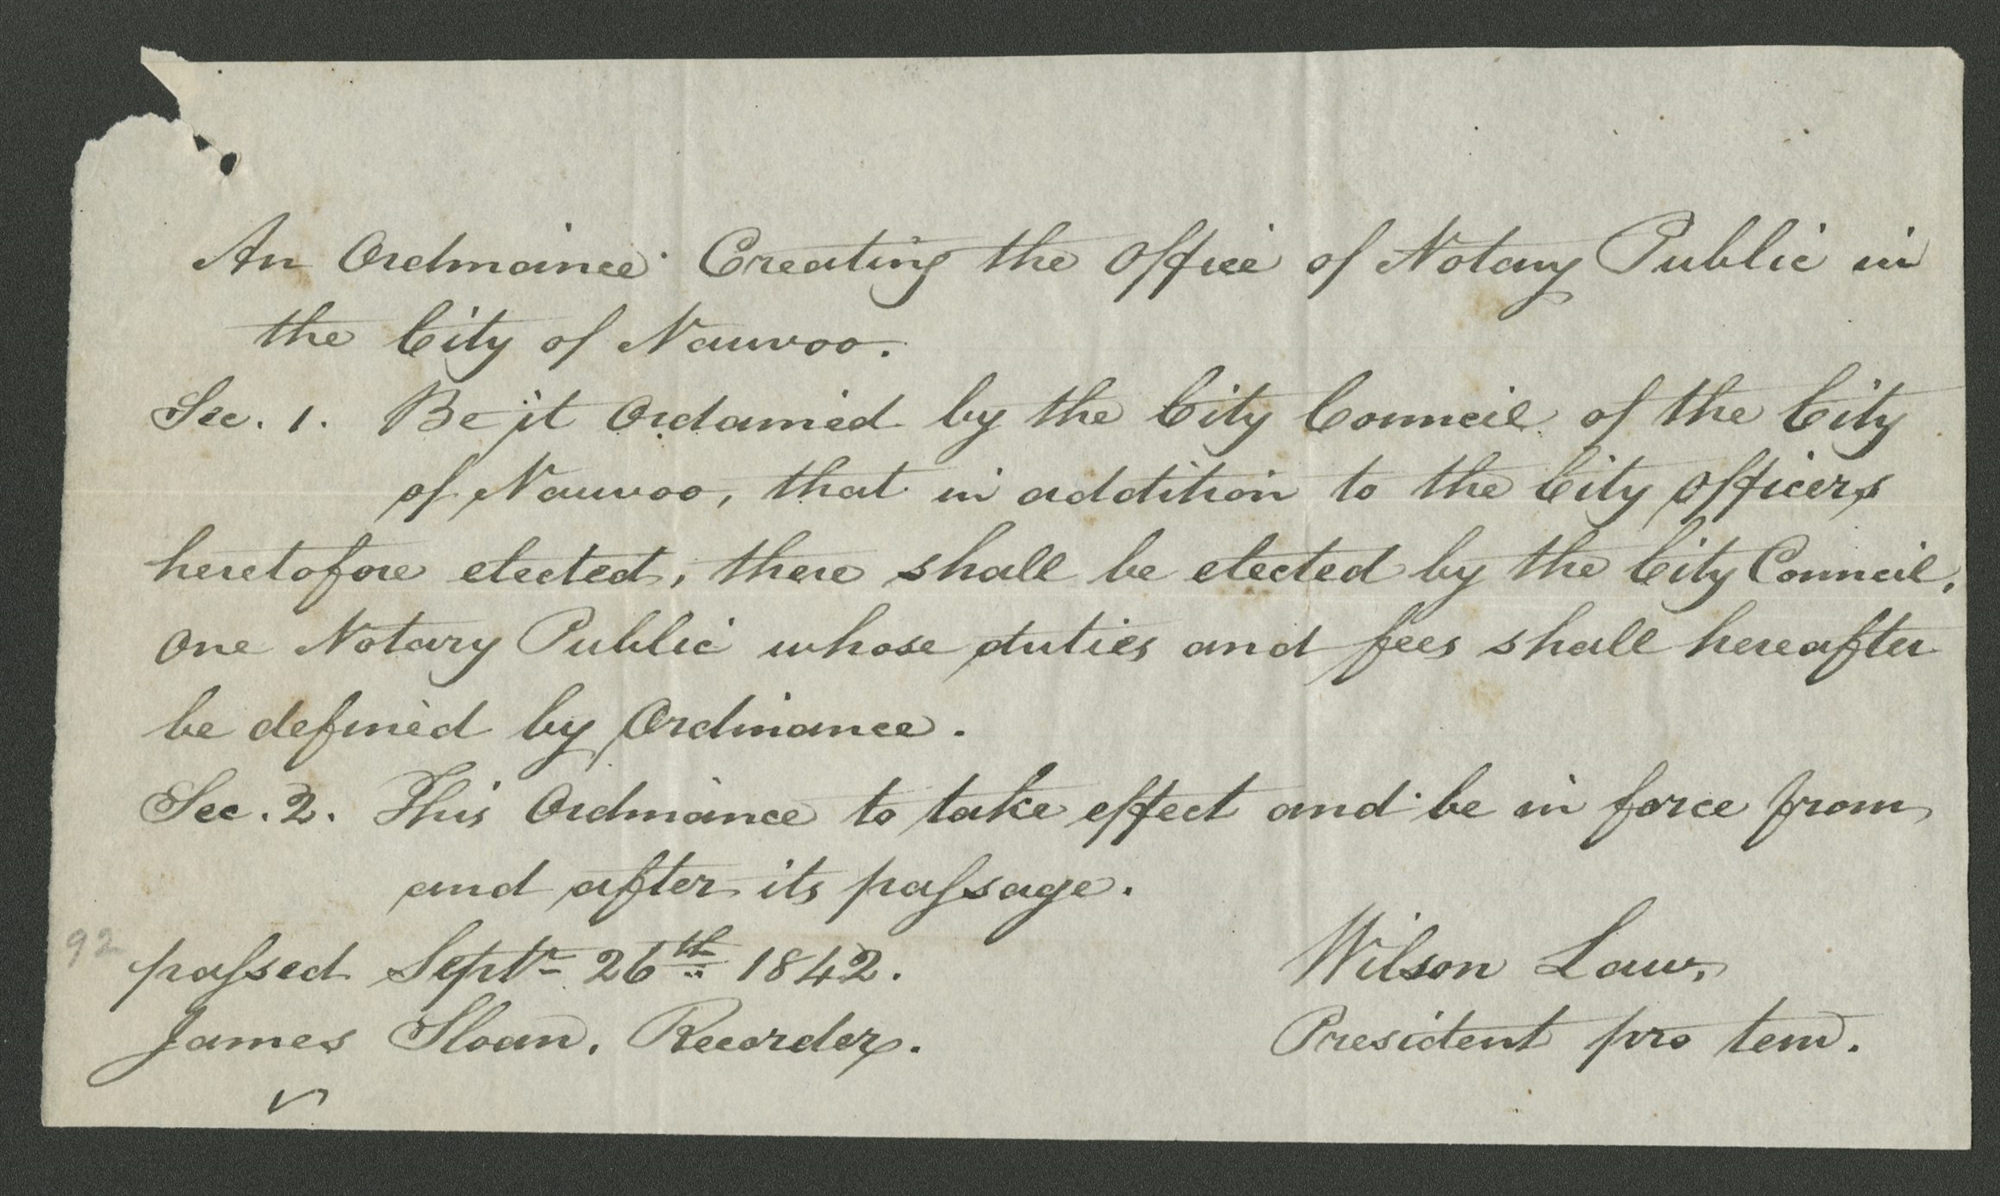 An Ordinance Creating the Office of Notary Public in
the City of Nauvoo.
Sec. 1. Be it Ordained by the City Council of the City
of Nauvoo, that in addition to the City Officers
heretofore elected, there shall be elected by the City Council,
one Notary Public whose duties and fees shall hereafter
be defined by Ordinance.
Sec. 2. This Ordinance to take effect and be in force from
and after its paſsage.
92
paſsed Septr 26th 1842.
Wilson Law,
James Sloan, Recorder.
President pro tem.